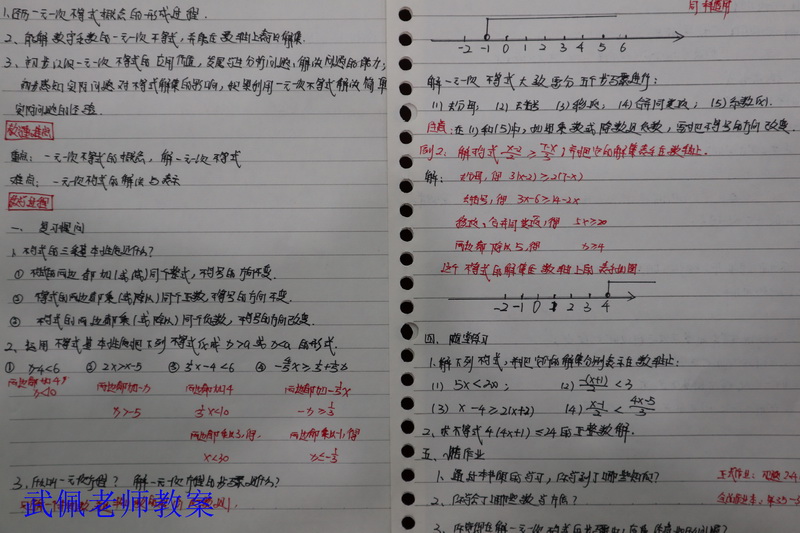 1、经历一元一次不等式概念的形成过程.
2、能解数字系数的一元一次不等式,并能在数轴上表示解集.
3、初步认识一元一次不等式的应用价值,发展学生分析问题、解决问题的能力;
初步感知实际问题对不等式解集的影响,
实际问题的经验.
教学重难点
重点:一元一次不等式的概念,解一元一次不等式
难点:一元一次不等式的解法与表示
教学过程
一、复习提问
1、不等式的三条基本性质是什么?
① 不等式的两边都加(或减)同一个整式,不等号的方向不变.
② 不等式的两边都乘(或除以)同一个正数,不等号的方向不变.
③ 不等式的两边都乘(或除以)同一个负数,不等号的方向改变.
2、运用不等式基本性质把下列不等式化成 x>a 或 x<a 的形式.
① x-4<6 ② 2x>x-5 ③ ⅓x-4<6
两边都加4, 两边都加-x 两边都加4
x<10 x>-5 ⅓x<10 -x≥⅓
两边都乘以3,得 两边都乘以-1,得
x<30 x≤-⅓
3、什么叫一元一次方程?解一元一次方程的步骤是什么?
武佩老师教案
-2 -1 0 1 2 3 4 5 6
解一元一次不等式大致要分五个步骤进行:
(1)去分母; (2)去括号 (3)移项; (4)合并同类项; (5)系数化1.
注意:在(1)和(5)中,如果乘数或除数是负数,要把不等号的方向改变.
例2:解不等式 (x-2)/2 ≥ (7-x)/3,并把它的解集表示在数轴上.
解: 去分母,得 3(x-2)≥2(7-x)
去括号,得 3x-6≥14-2x
移项、合并同类项,得 5x≥20
两边都除以5,得 x≥4
这个不等式的解集在数轴上的表示如图.
-2 -1 0 1 2 3 4
四、随堂练习
1.解下列不等式,并把它们的解集分别表示在数轴上:
(1) 5x<200; (2) -(x+1)/2 < 3
(3) x-4≥2(x+2) (4) (x-1)/2 < (4x-5)/3
2、求不等式4(4x+1)≤24的正整数解.
五、小结作业
1、通过本节课的学习,你学到了哪些知识?
2、你学会了哪些数学方法?